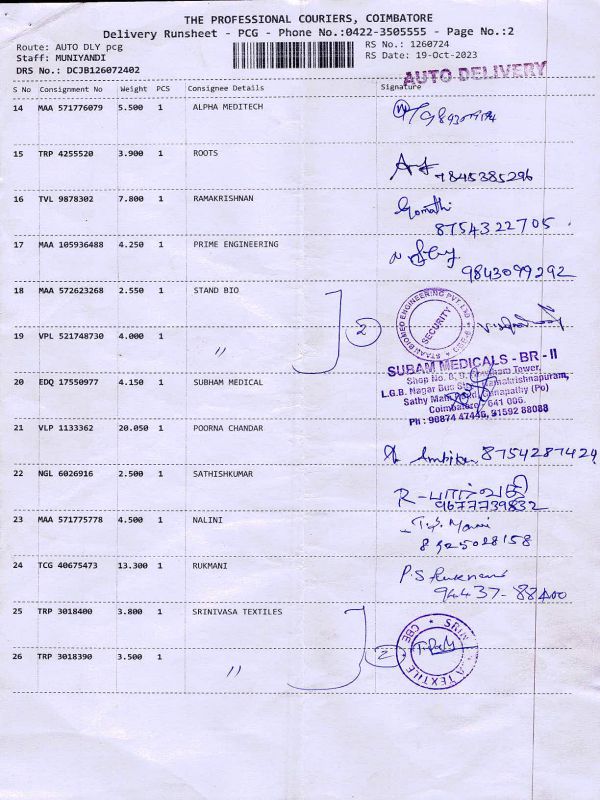 THE PROFESSIONAL COURIERS, COIMBATORE
Delivery Runsheet - PCG - Phone No.:0422-3505555 - Page No.:2
Route: AUTO DLY pcg RS No.: 1260724
Staff: MUNIYANDI RS Date: 19-Oct-2023
DRS No.: DCJB126072402
AUTO DELIVERY
S No Consignment No Weight PCS Consignee Details Signature
14 MAA 571776079 5.500 1 ALPHA MEDITECH
15 TRP 4255520 3.900 1 ROOTS
9845385296
16 TVL 9878302 7.800 1 RAMAKRISHNAN Gomathi
8754322705
17 MAA 105936488 4.250 1 PRIME ENGINEERING
9843099292
18 MAA 572623268 2.550 1 STAND BIO
2
STAAN BIOMED ENGINEERING PVT LTD
SECURITY
19 VPL 521748730 4.000 1 〃
20 EDQ 17550977 4.150 1 SUBHAM MEDICAL
SUBAM MEDICALS - BR - II
Shop No. Tower,
L.G.B. Nagar Bus Ramakrishnapuram,
Sathy Main Road, Ganapathy (Po)
Coimbatore - 641 006.
Ph : 90874 47446, 91592 88088
21 VLP 1133362 20.050 1 POORNA CHANDAR
8754287424
22 NGL 6026916 2.500 1 SATHISHKUMAR
9677739832
23 MAA 571775778 4.500 1 NALINI
8925028158
24 TCG 40675473 13.300 1 RUKMANI P.S Rukmani
94437-88400
25 TRP 3018400 3.800 1 SRINIVASA TEXTILES
2
CBE
26 TRP 3018390 3.500 1 〃